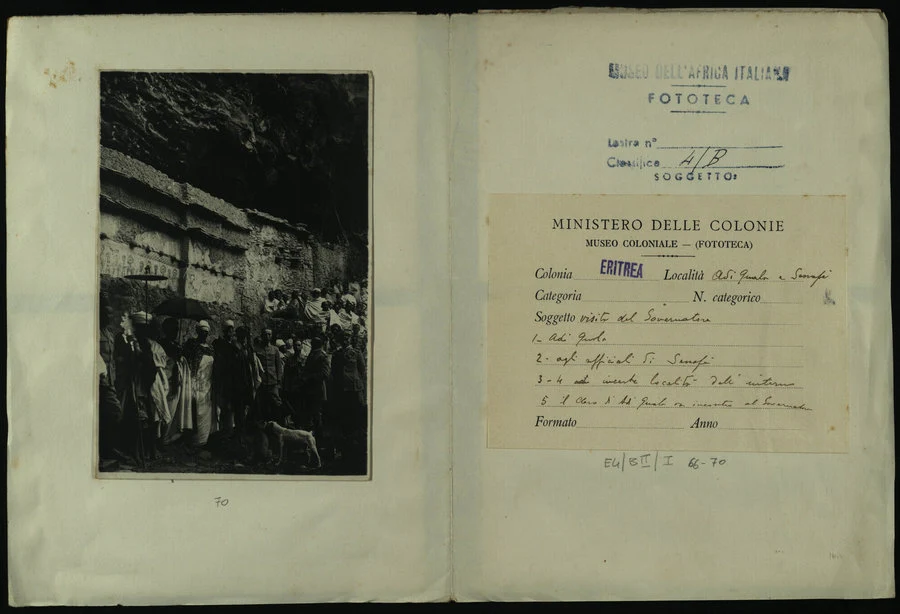 MUSEO DELL'AFRICA ITALIANA
FOTOTECA
Lastra n°
Classifica 4/B
SOGGETTO:
MINISTERO DELLE COLONIE
MUSEO COLONIALE — (FOTOTECA)
Colonia ERITREA Località Adi Quala e Senafè
Categoria N. categorico
Soggetto visita del Governatore
1- Adi Quala
2- agli ufficiali di Senafè
3-4 incerte località dell'interno
5 il Clero di Adi Quala incontro al Governatore
Formato Anno
E4/BII/I 66-70
70